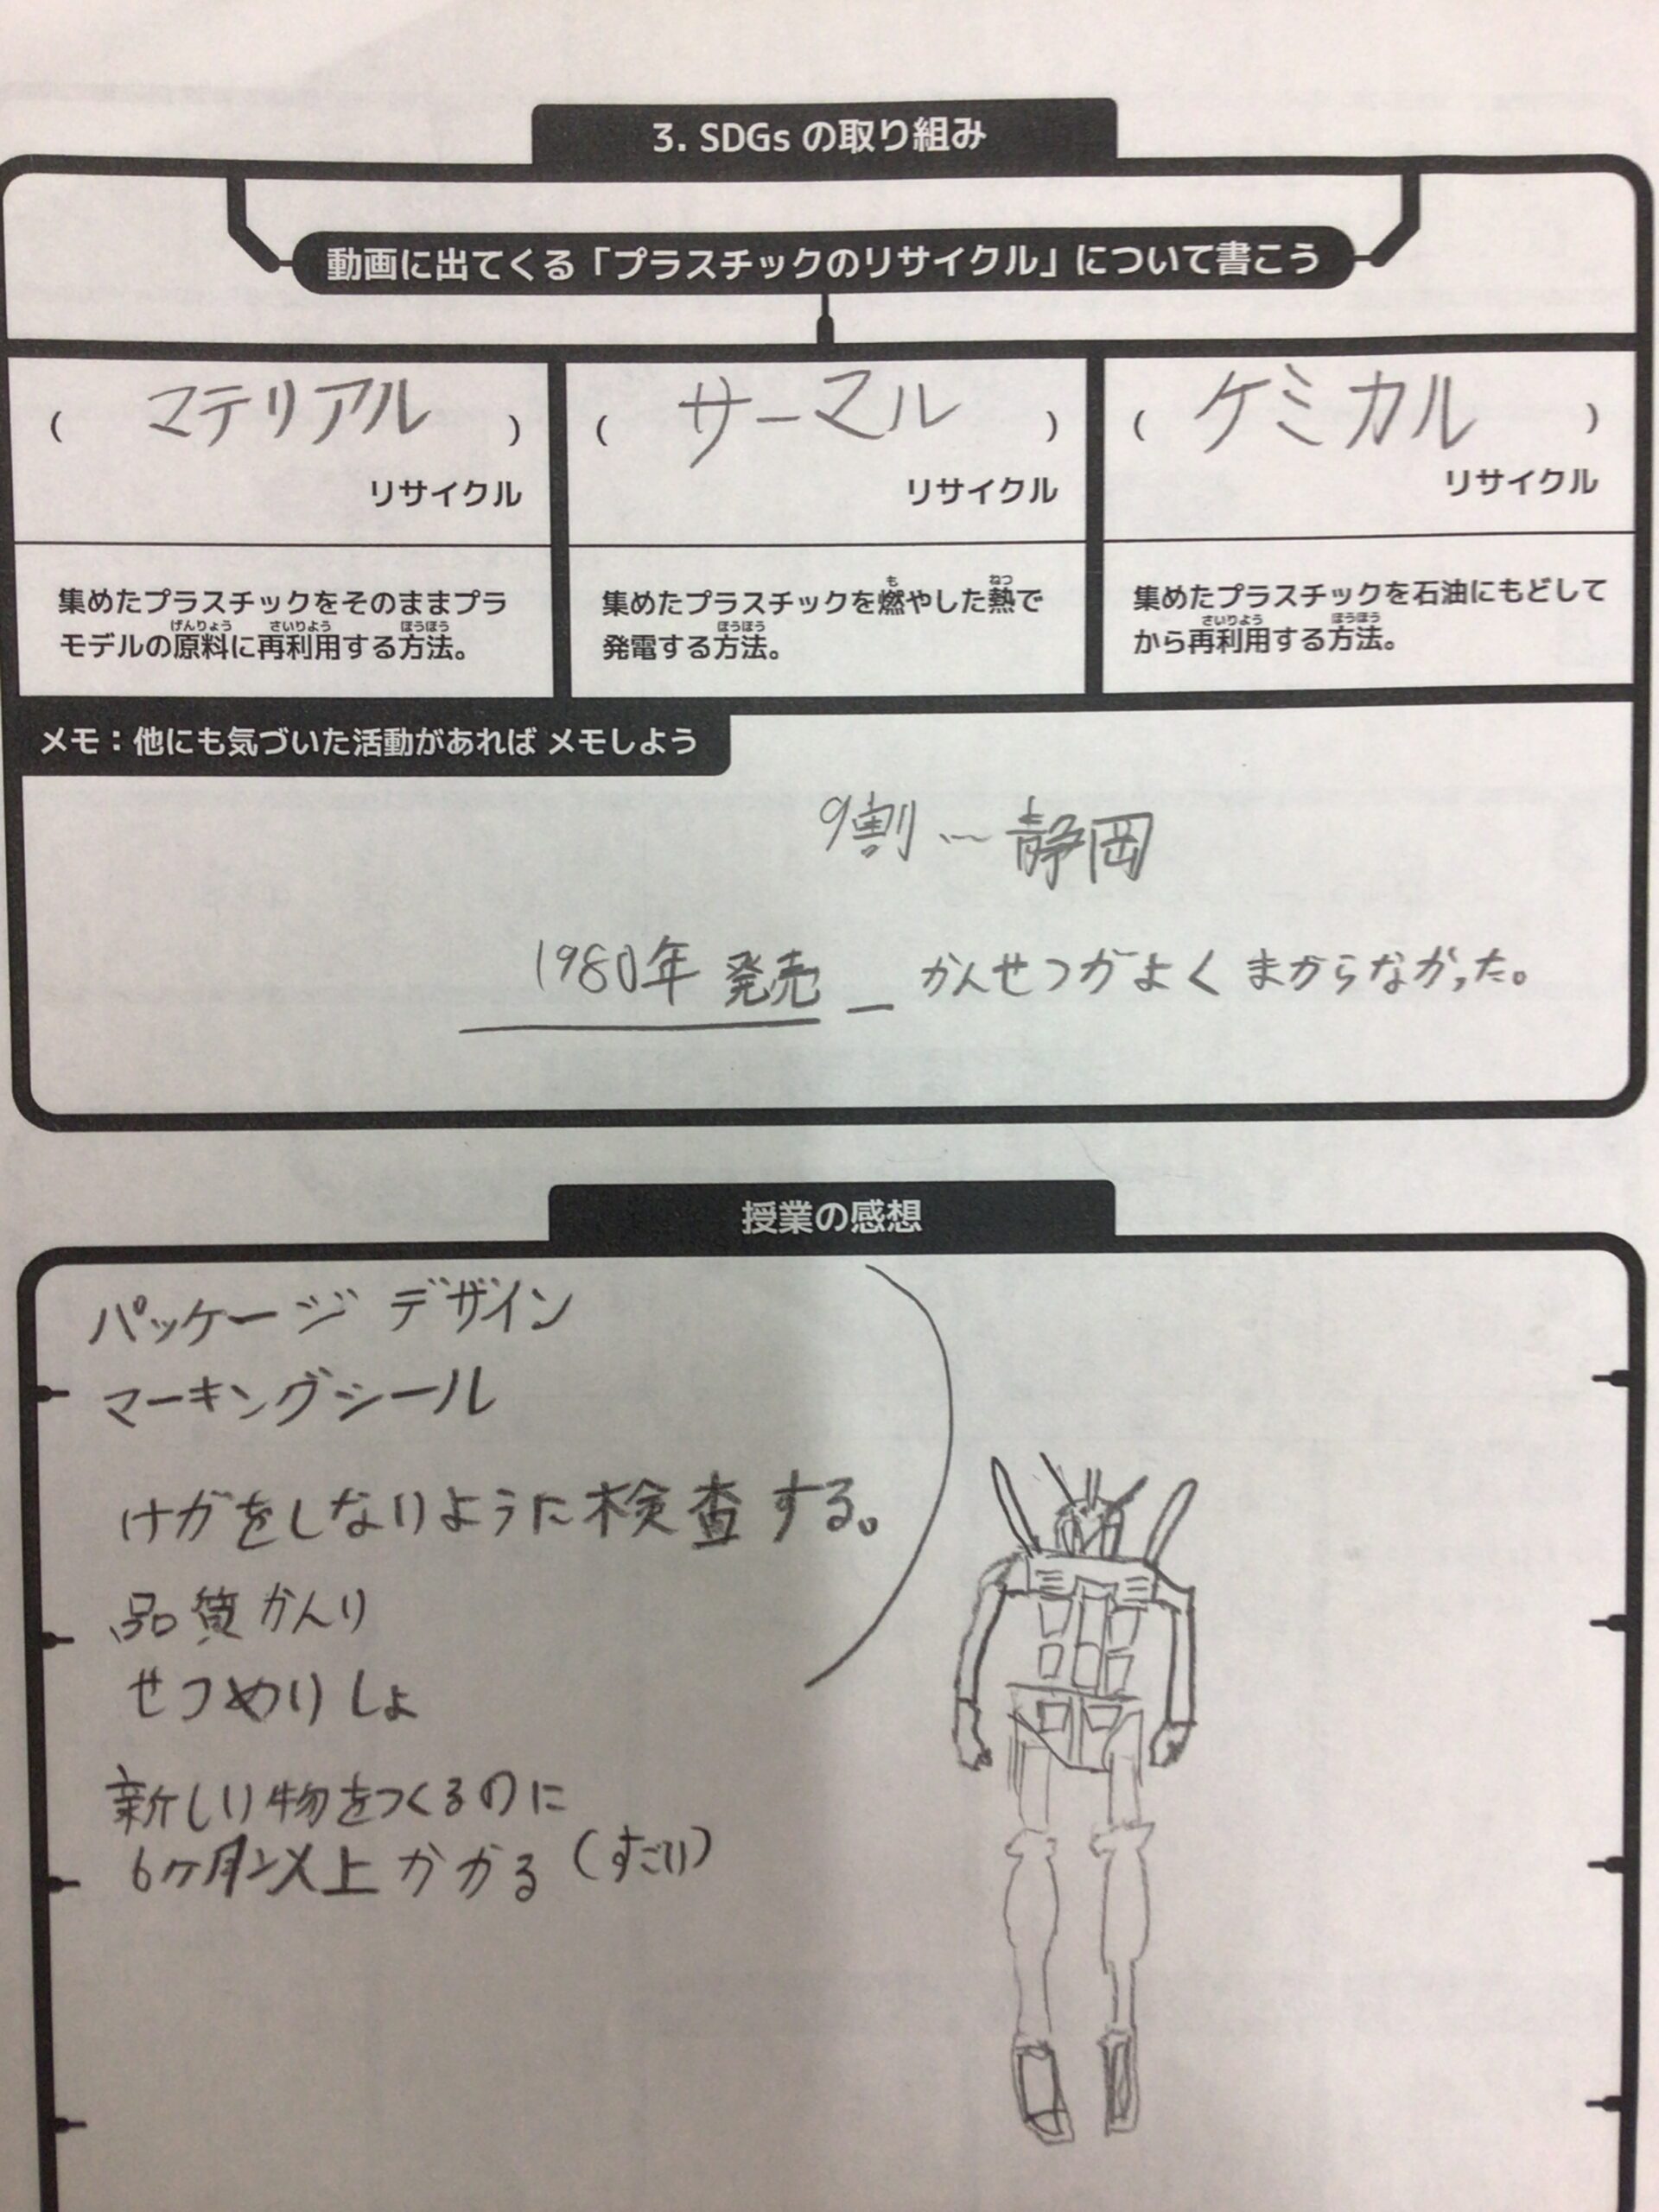 3. SDGs の取り組み
動画に出てくる「プラスチックのリサイクル」について書こう
( マテリアル )
リサイクル
集めたプラスチックをそのままプラ
げんりょう さいりよう ほうほう
モデルの原料に再利用する方法。
( サーマル )
リサイクル
も ねつ
集めたプラスチックを燃やした熱で
ほうほう
発電する方法。
( ケミカル )
リサイクル
集めたプラスチックを石油にもどして
さいりよう ほうほう
から再利用する方法。
メモ：他にも気づいた活動があれば メモしよう
9割 〜 静岡
1980年 発売 ー かんせつがよく まがらなかった。
授業の感想
パッケージ デザイン
マーキングシール
けがをしないように検査する。
品質かんり
せつめいしょ
新しい物をつくるのに
6ヶ月以上かかる(すごい)